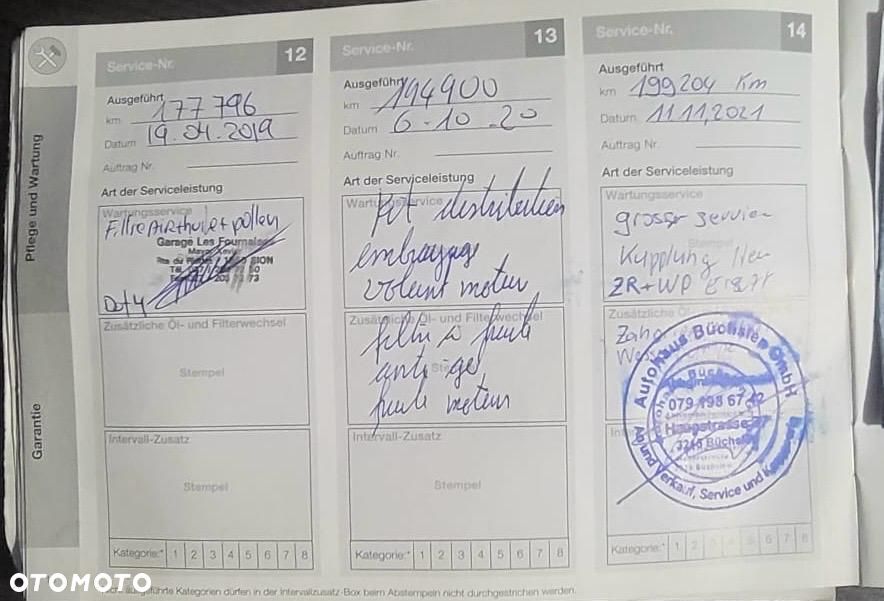 Pflege und Wartung
Garantie
Service-Nr. 12
Ausgeführt
km 177796
Datum 19.04.2019
Auftrag Nr.
Art der Serviceleistung
Wartungsservice
Filtre Air+huile+pollen
Garage Les Fournaises
SION
Zusätzliche Öl- und Filterwechsel
Stempel
Intervall-Zusatz
Stempel
Kategorie:* 1 2 3 4 5 6 7 8
Service-Nr. 13
Ausgeführt
km 194900
Datum 6-10-20
Auftrag Nr.
Art der Serviceleistung
Wartungsservice
Kit distribution
embrayage
volant moteur
Zusätzliche Öl- und Filterwechsel
filtre à huile
anti-gel
huile moteur
Intervall-Zusatz
Stempel
Kategorie:* 1 2 3 4 5 6 7 8
Service-Nr. 14
Ausgeführt
km 199204 Km
Datum 11.11.2021
Auftrag Nr.
Art der Serviceleistung
Wartungsservice
grosser service
Stempel
Kupplung Neu
ZR+WP Ersetzt
Autohaus Büchslen GmbH
079 198 67 42
Hauptstrasse
3215 Büchslen
An und Verkauf, Service und
Kategorie:* 1 2 3 4 5 6 7 8
ausgeführte Kategorien dürfen in der Intervallzusatz-Box beim Abstempeln nicht durchgestrichen werden.
OTOMOTO